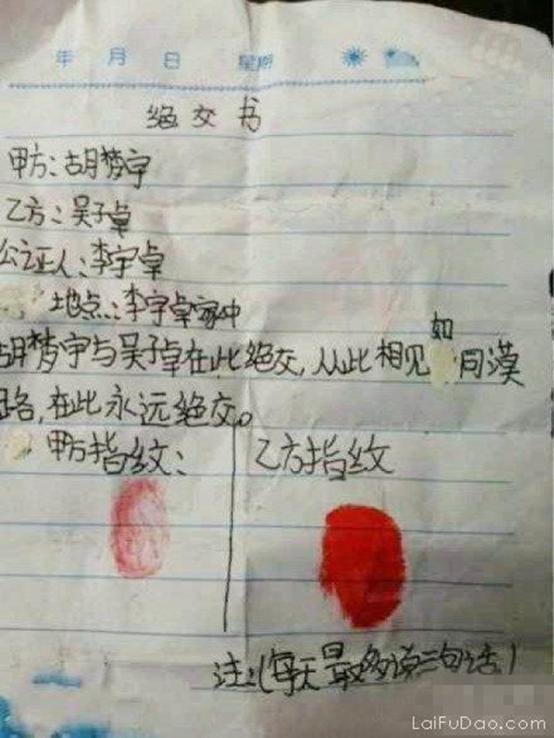 年 月 日 星期
绝交书
甲方:胡梦宇
乙方:吴子卓
公证人:李宇卓
地点:李宇卓家中
胡梦宇与吴子卓在此绝交,从此相见如同漠
路,在此永远绝交。
甲方指纹: 乙方指纹
注:(每天最多谈三句话)
LaiFuDao.com